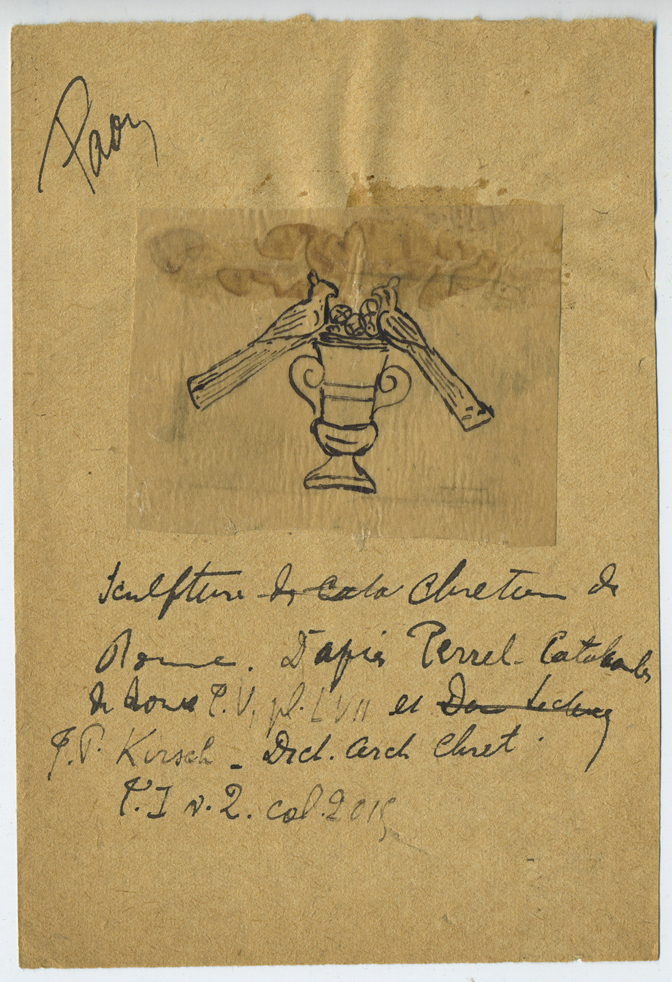 Paon
Sculpture de Cata Chretien de
Rome. Dapres Perret. Catacombes
de Rome T. V, pl. LVII et Dom Leclercq
J.P. Kirsch - Dict. Arch Chret.
T. I v. 2. col. 2015